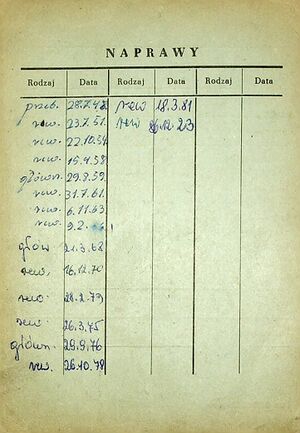 NAPRAWY
Rodzaj Data Rodzaj Data Rodzaj Data
przeb. 28.7.48 rew 18.3.81
rew. 23.7.51. rew 6.12.23
rew. 22.10.54.
rew. 15.4.58
główn. 29.8.59
rew. 31.7.61.
rew. 6.11.63.
rew. 9.2.
głów 21.3.68
rew. 16.12.70
rew 28.2.79
rew. 26.3.75
główn. 29.9.76
rew. 26.10.78